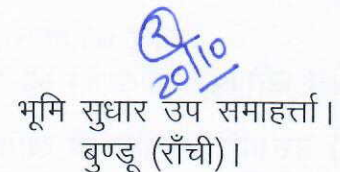 20/10
भूमि सुधार उप समाहर्त्ता।
बुण्डू (राँची)।